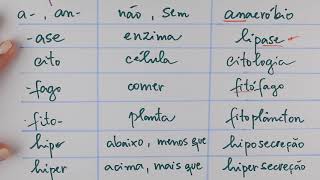 a- , an- não, sem anaeróbio
-ase enzima lipase
cito célula citologia
-fago comer fitófago
-fito- planta fitoplâncton
hipo abaixo, menos que hiposecreção
hiper acima, mais que hipersecreção